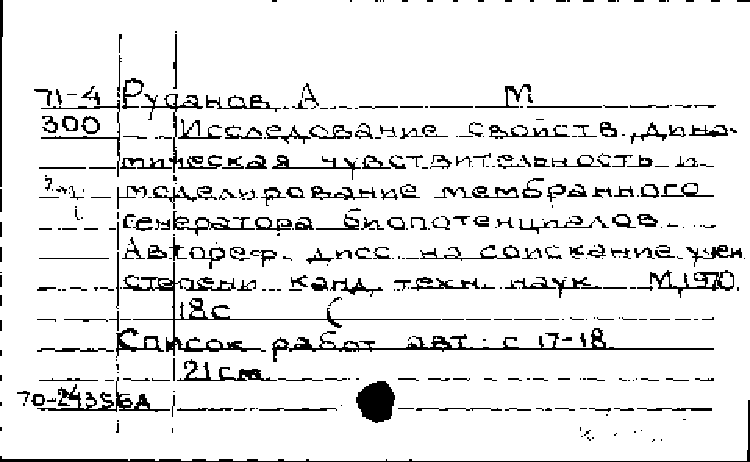 71-4 Русанов А М
300 Исследование свойств, дина-
мическая чувствительность и
моделирование мембранного
генератора биопотенциалов
Автореф. дисс на соискание учен
степени канд техн. наук М, 1970.
18с
Список работ авт.: с 17-18
21 см